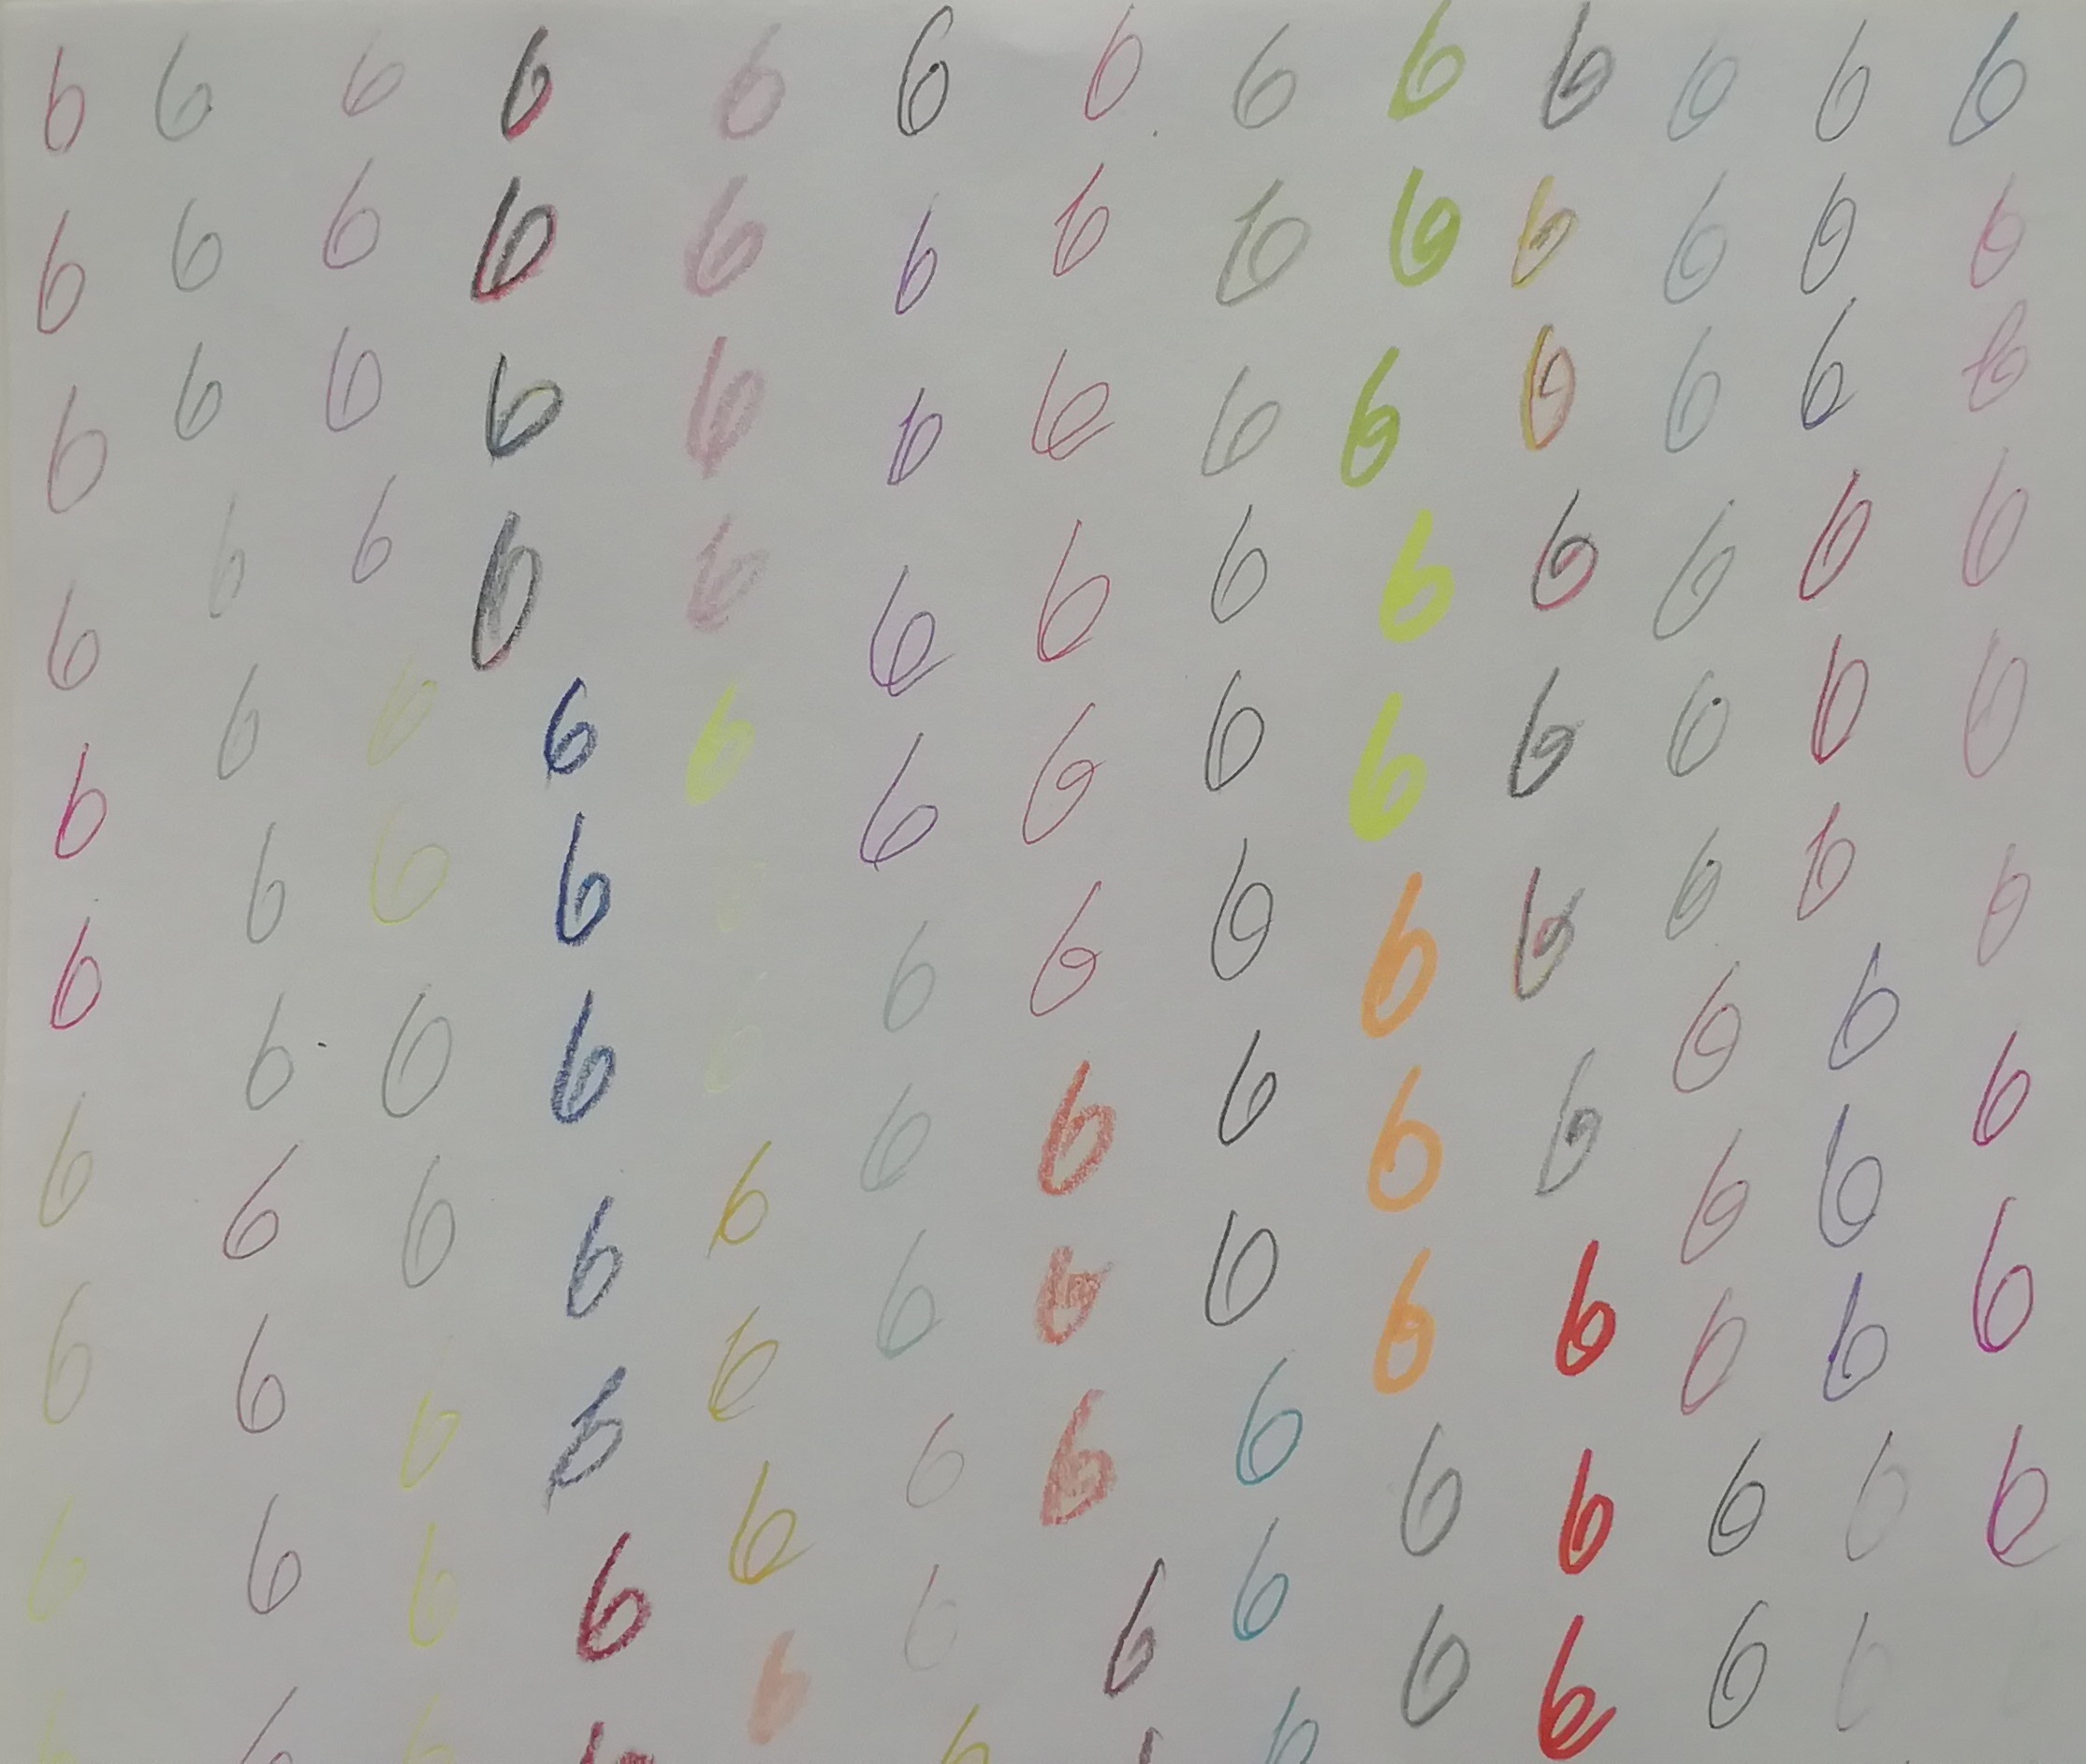 6 6 6 6 6 6 6 6 6 6 6 6 6
6 6 6 6 6 6 6 6 6 6 6 6 6
6 6 6 6 6 6 6 6 6 6 6 6 6
6 6 6 6 6 6 6 6 6 6 6 6 6
6 6 6 6 6 6 6 6 6 6 6 6 6
6 6 6 6 6 6 6 6 6 6 6 6 6
6 6 6 6 6 6 6 6 6 6 6 6 6
6 6 6 6 6 6 6 6 6 6 6 6 6
6 6 6 6 6 6 6 6 6 6 6 6 6
6 6 6 6 6 6 6 6 6 6 6 6 6
6 6 6 6 6 6 6 6 6 6 6 6